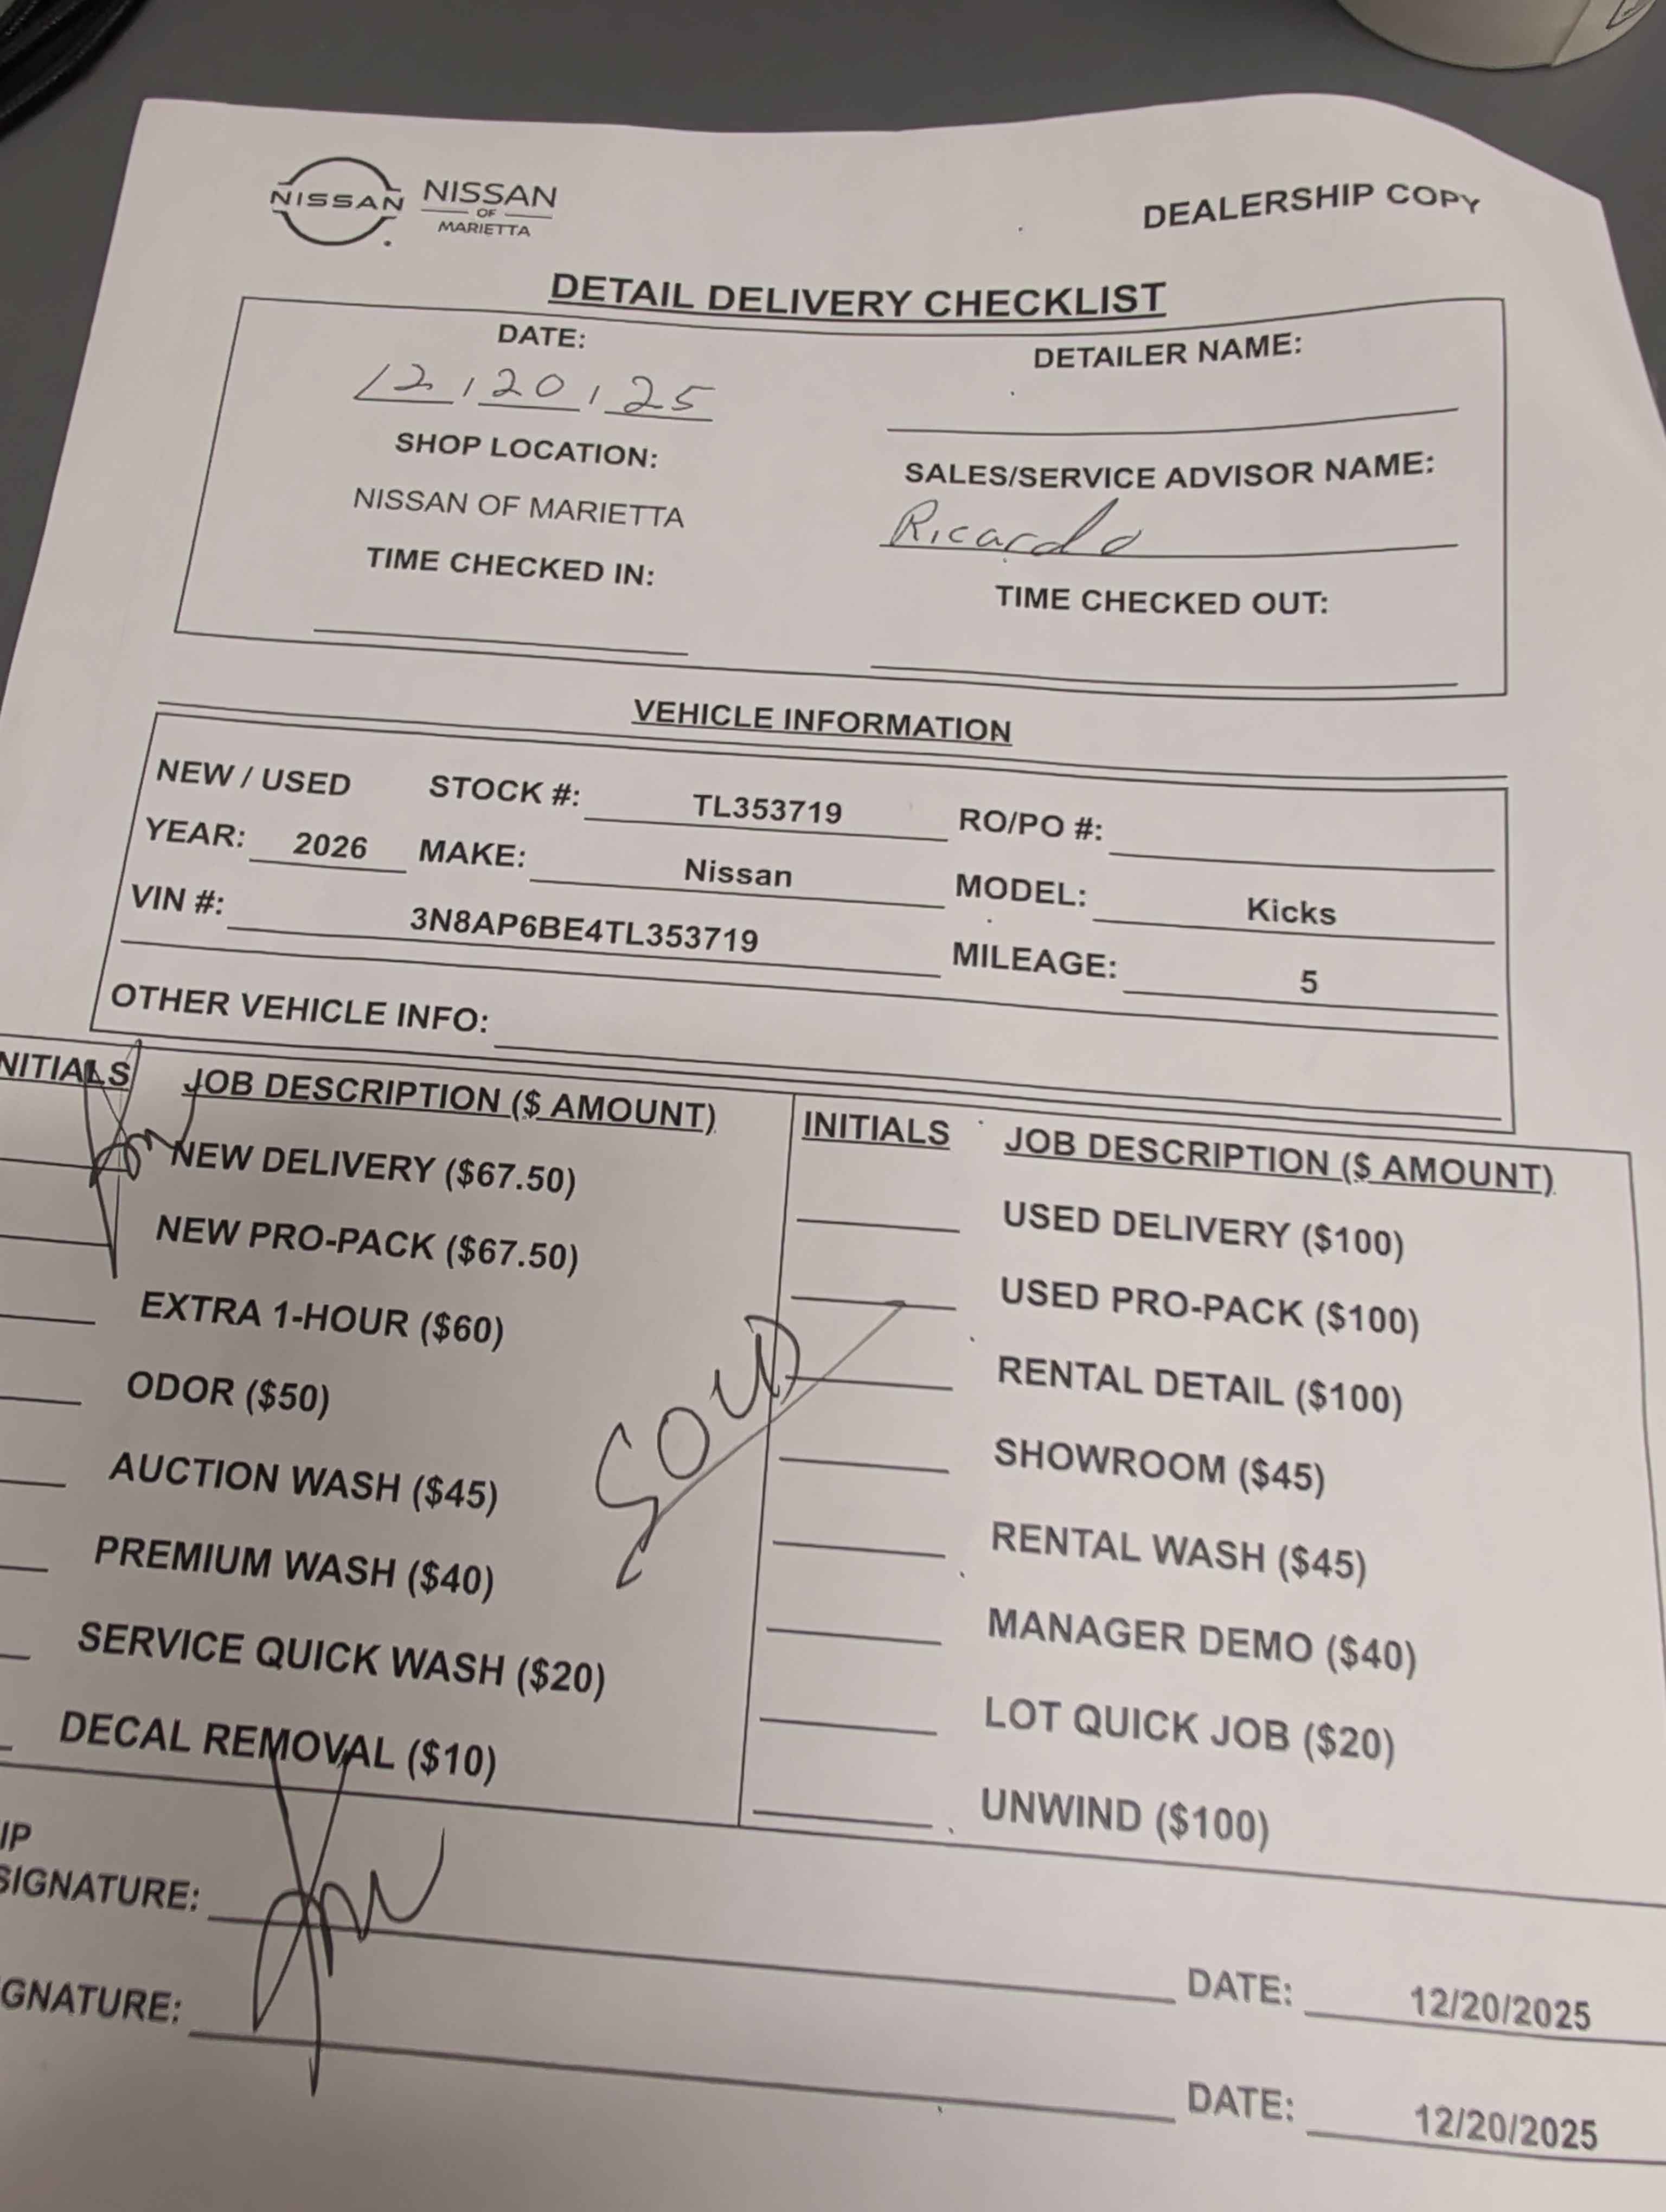 NISSAN
NISSAN
OF
MARIETTA
DEALERSHIP COPY
DETAIL DELIVERY CHECKLIST
DATE:
12/20/25
DETAILER NAME:
SHOP LOCATION:
NISSAN OF MARIETTA
SALES/SERVICE ADVISOR NAME:
Ricardo
TIME CHECKED IN:
TIME CHECKED OUT:
VEHICLE INFORMATION
NEW / USED STOCK #: TL353719 RO/PO #:
YEAR: 2026 MAKE: Nissan MODEL: Kicks
VIN #: 3N8AP6BE4TL353719 MILEAGE: 5
OTHER VEHICLE INFO:
NITIALS JOB DESCRIPTION ($ AMOUNT)
NEW DELIVERY ($67.50)
NEW PRO-PACK ($67.50)
EXTRA 1-HOUR ($60)
ODOR ($50)
AUCTION WASH ($45)
PREMIUM WASH ($40)
SERVICE QUICK WASH ($20)
DECAL REMOVAL ($10)
SOLD
INITIALS JOB DESCRIPTION ($ AMOUNT)
USED DELIVERY ($100)
USED PRO-PACK ($100)
RENTAL DETAIL ($100)
SHOWROOM ($45)
RENTAL WASH ($45)
MANAGER DEMO ($40)
LOT QUICK JOB ($20)
UNWIND ($100)
IP
SIGNATURE: DATE: 12/20/2025
GNATURE: DATE: 12/20/2025